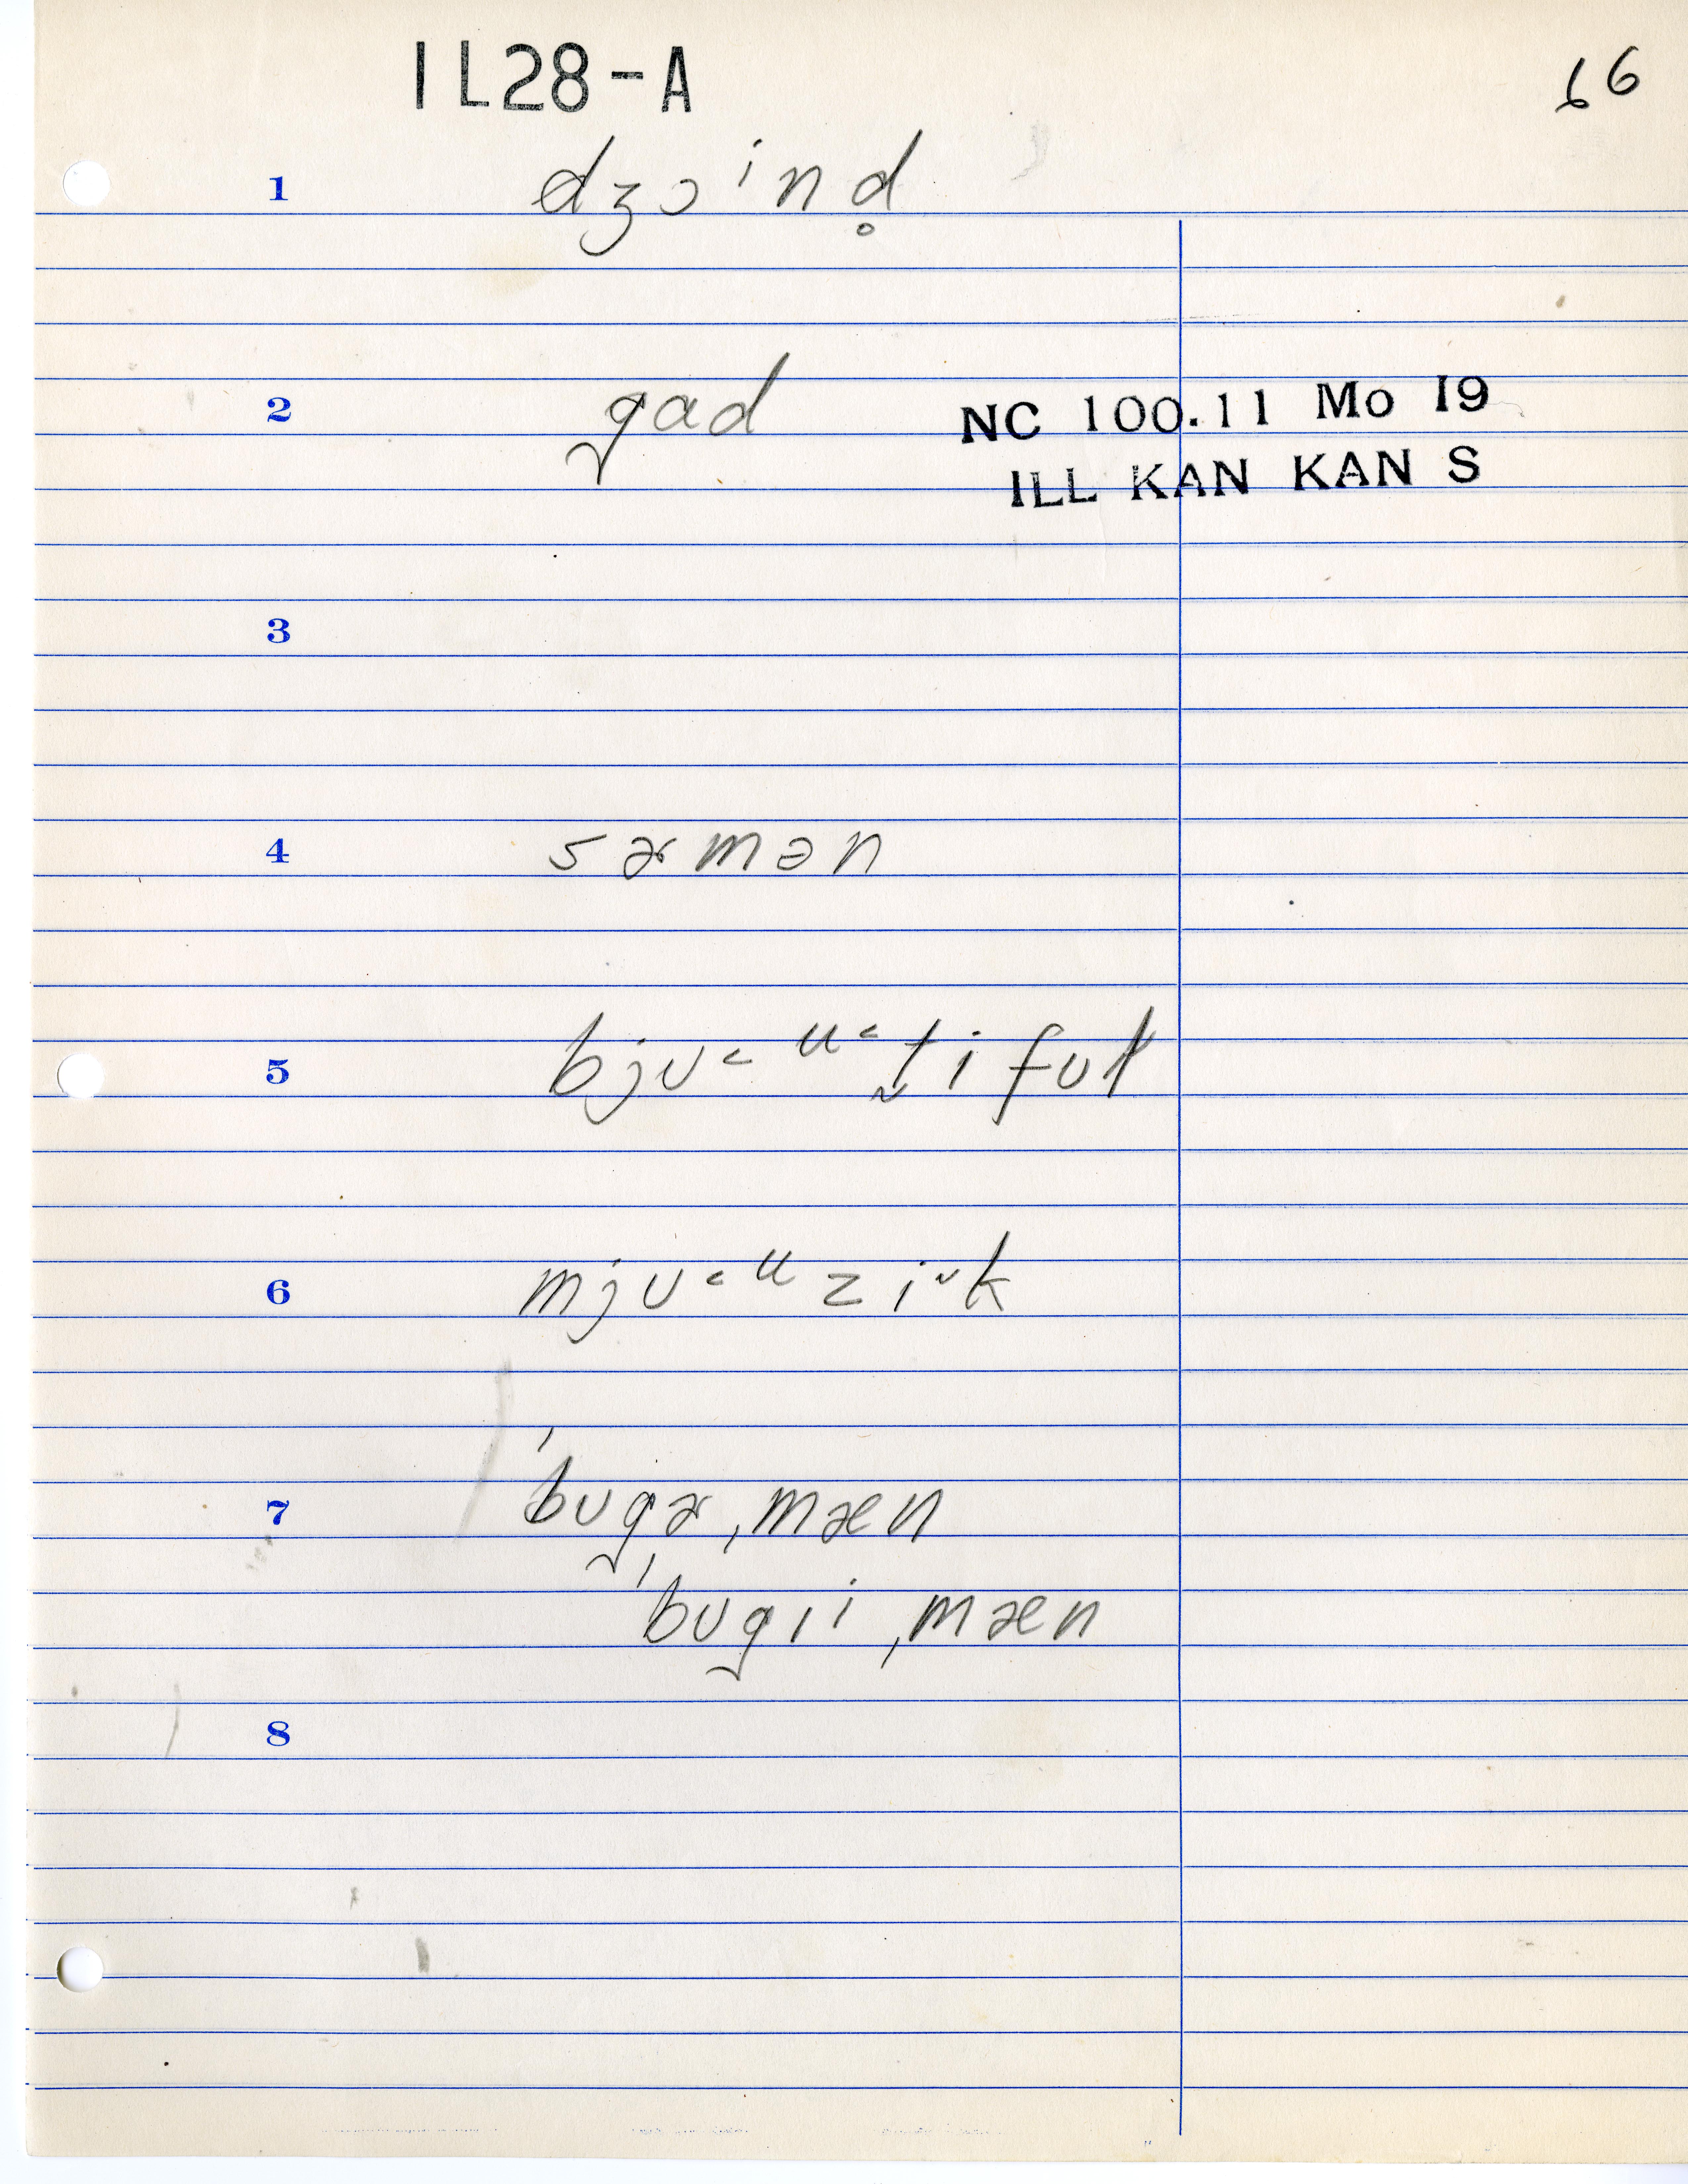 IL28-A
66
1 dʒɔⁱnd̥
2 gad
NC 100.11 Mo I9
ILL KAN KAN S
3
4 sɚmən
5 bjʊ˂ᵘ˂t̬ifʊɫ
6 mjʊ˂ᵘzi˅k
7 ˈbʊgɚˌmæn
ˈbʊgɪiˌmæn
8